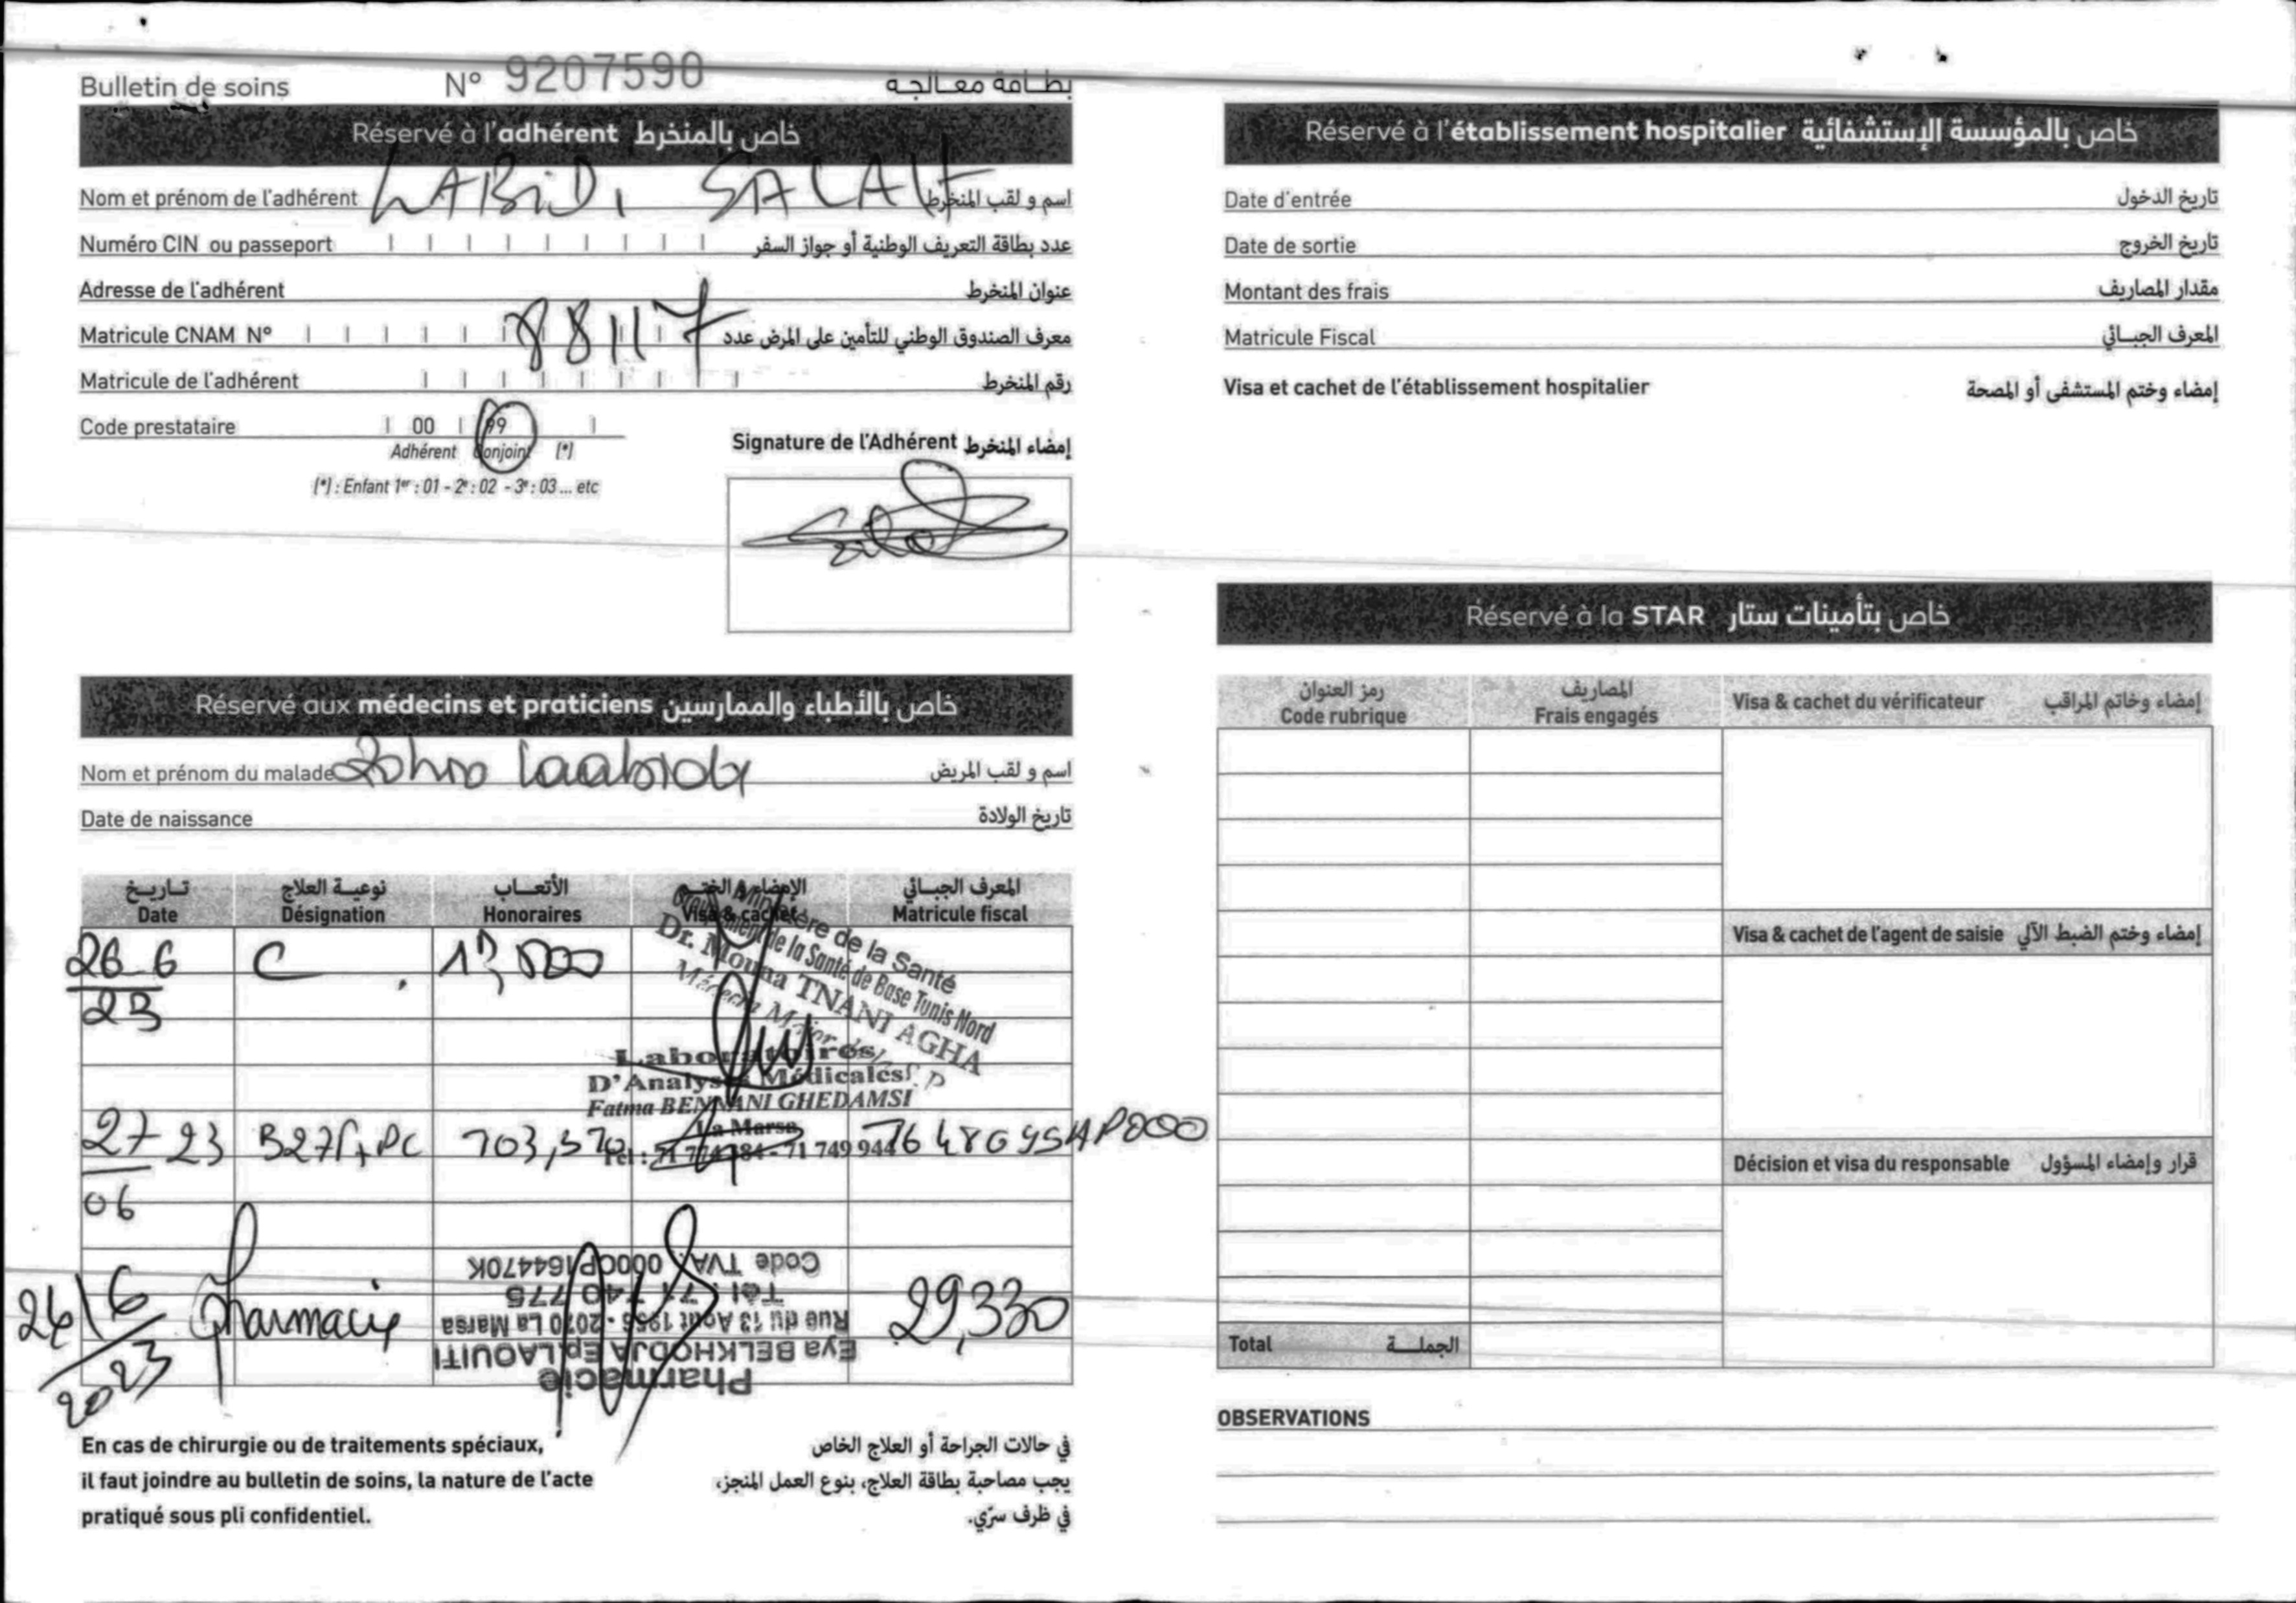 Bulletin de soins N° 9207590 بطاقة معالجة
Réservé à l'adhérent خاص بالمنخرط
Nom et prénom de l'adhérent LABIDI SALAH اسم و لقب المنخرط
Numéro CIN ou passeport عدد بطاقة التعريف الوطنية أو جواز السفر
Adresse de l'adhérent عنوان المنخرط
Matricule CNAM N° 88117 معرف الصندوق الوطني للتأمين على المرض عدد
Matricule de l'adhérent رقم المنخرط
Code prestataire 00 99
Adhérent Conjoint (*)
(*) : Enfant 1er : 01 - 2e : 02 - 3e : 03 ... etc
Signature de l'Adhérent إمضاء المنخرط
Réservé aux médecins et praticiens خاص بالأطباء والممارسين
Nom et prénom du malade اسم و لقب المريض
Date de naissance تاريخ الولادة
تاريخ نوعية العلاج الأتعاب الإمضاء و الختم المعرف الجبائي
Date Désignation Honoraires Visa & cachet Matricule fiscal
26-6 C
23
Ministère de la Santé
Groupement de la Santé de Base Tunis Nord
Dr. Mouna TNANI AGHA
Médecin Major
Laboratoires
D'Analyses Médicales
Fatma BENNANI GHEDAMSI
La Marsa
27 23 703,570 71 749 944
06
24/6 Pharmacie 29,330
2023
Pharmacie
Eya BELKHODJA Ep LAOUITI
Rue du 13 Août 1956 - 2070 La Marsa
Tél : 71 740 775
Code TVA : 1644470K
En cas de chirurgie ou de traitements spéciaux,
il faut joindre au bulletin de soins, la nature de l'acte
pratiqué sous pli confidentiel.
في حالات الجراحة أو العلاج الخاص
يجب مصاحبة بطاقة العلاج، بنوع العمل المنجز،
في ظرف سرّي.
Réservé à l'établissement hospitalier خاص بالمؤسسة الإستشفائية
Date d'entrée تاريخ الدخول
Date de sortie تاريخ الخروج
Montant des frais مقدار المصاريف
Matricule Fiscal المعرف الجبائي
Visa et cachet de l'établissement hospitalier إمضاء وختم المستشفى أو المصحة
Réservé à la STAR خاص بتأمينات ستار
رمز العنوان المصاريف
Code rubrique Frais engagés Visa & cachet du vérificateur إمضاء وخاتم المراقب
Visa & cachet de l'agent de saisie إمضاء وختم الضبط الآلي
Décision et visa du responsable قرار وإمضاء المسؤول
Total الجملة
OBSERVATIONS